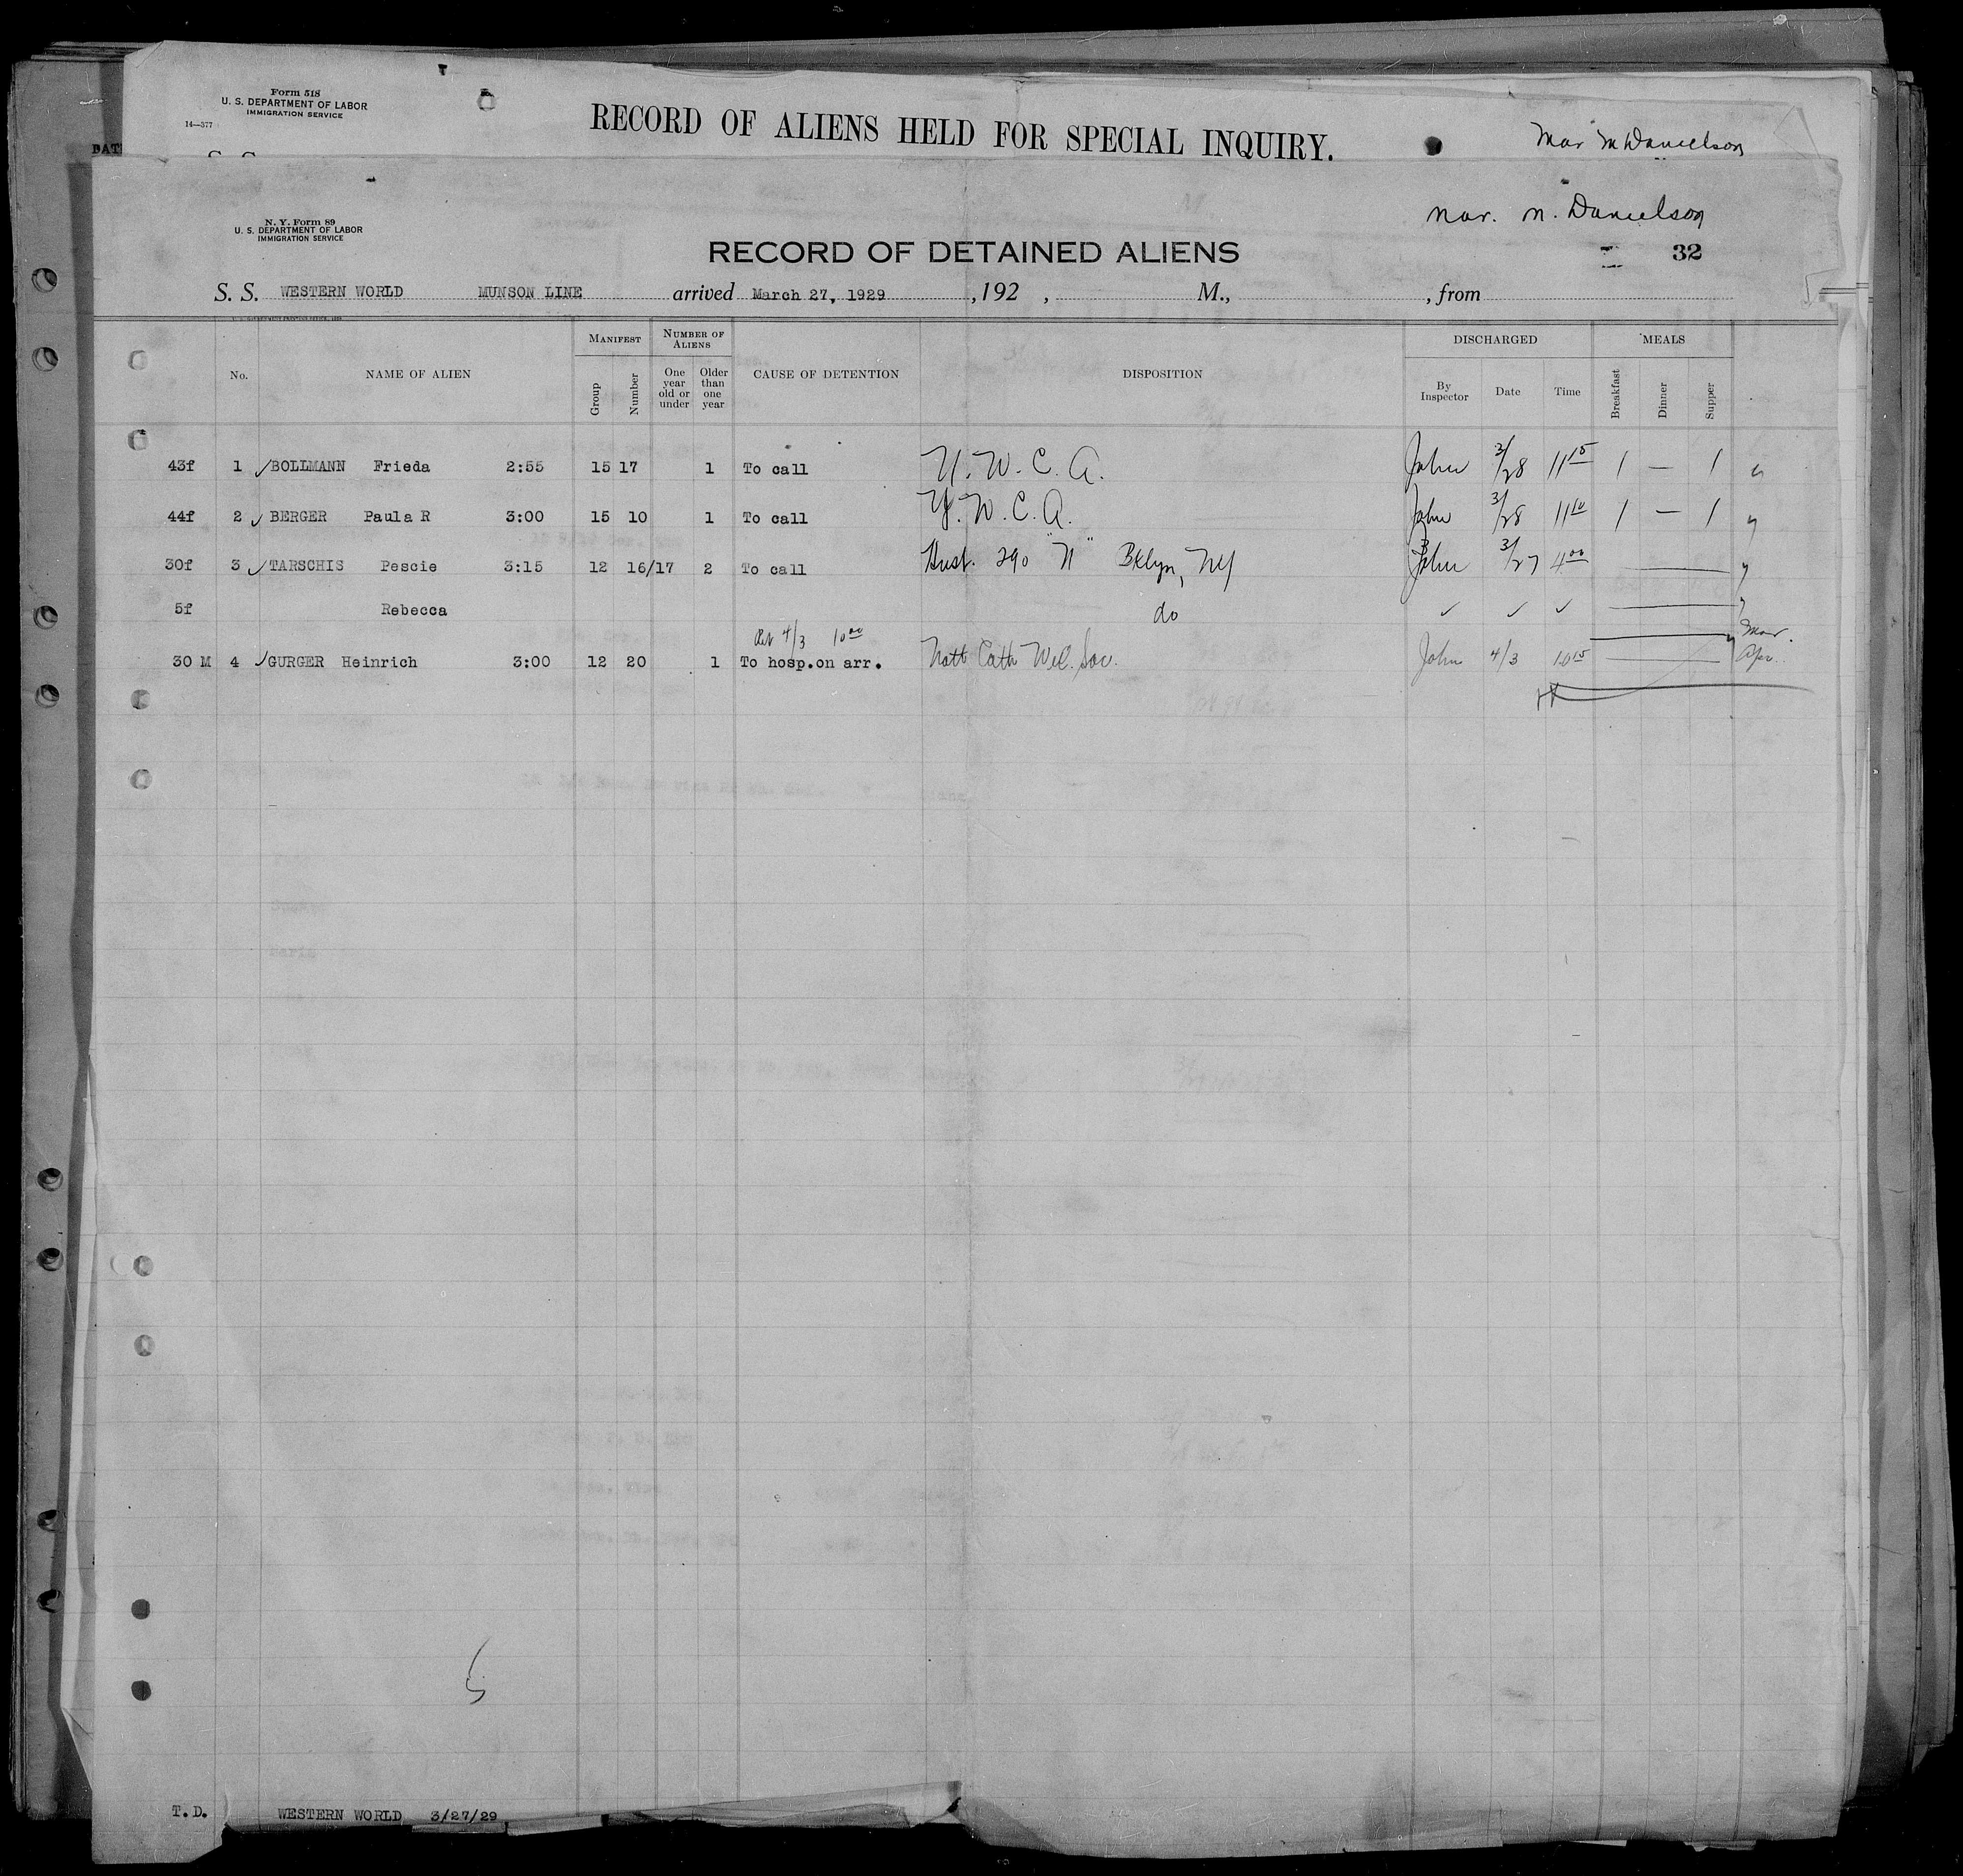 Form 518
U. S. DEPARTMENT OF LABOR
IMMIGRATION SERVICE
14—377
RECORD OF ALIENS HELD FOR SPECIAL INQUIRY.
Mar M Danielson
DAT
N. Y. Form 89
U. S. DEPARTMENT OF LABOR
IMMIGRATION SERVICE
Mar. M. Danielson
RECORD OF DETAINED ALIENS
32
S. S. WESTERN WORLD MUNSON LINE arrived March 27, 1929 , 192 , M., , from
No. NAME OF ALIEN MANIFEST Group Number NUMBER OF ALIENS One year old or under Older than one year CAUSE OF DETENTION DISPOSITION DISCHARGED By Inspector Date Time MEALS Breakfast Dinner Supper
43f 1 ✓ BOLLMANN Frieda 2:55 15 17 1 To call Y. W. C. A. John 3/28 11 15 1 — 1
44f 2 ✓ BERGER Paula R 3:00 15 10 1 To call Y. W. C. A. John 3/28 11 10 1 — 1
30f 3 ✓ TARSCHIS Pescie 3:15 12 16/17 2 To call Husb. 290 "N" Bklyn, NY John 3/27 4 00
5f Rebecca do ✓ ✓ ✓
4/3 10 00 Mar.
30 M 4 ✓ GURGER Heinrich 3:00 12 20 1 To hosp.on arr. Natl Cath Wel. Soc. John 4/3 10 15 Apr.
5
T. D. WESTERN WORLD 3/27/29